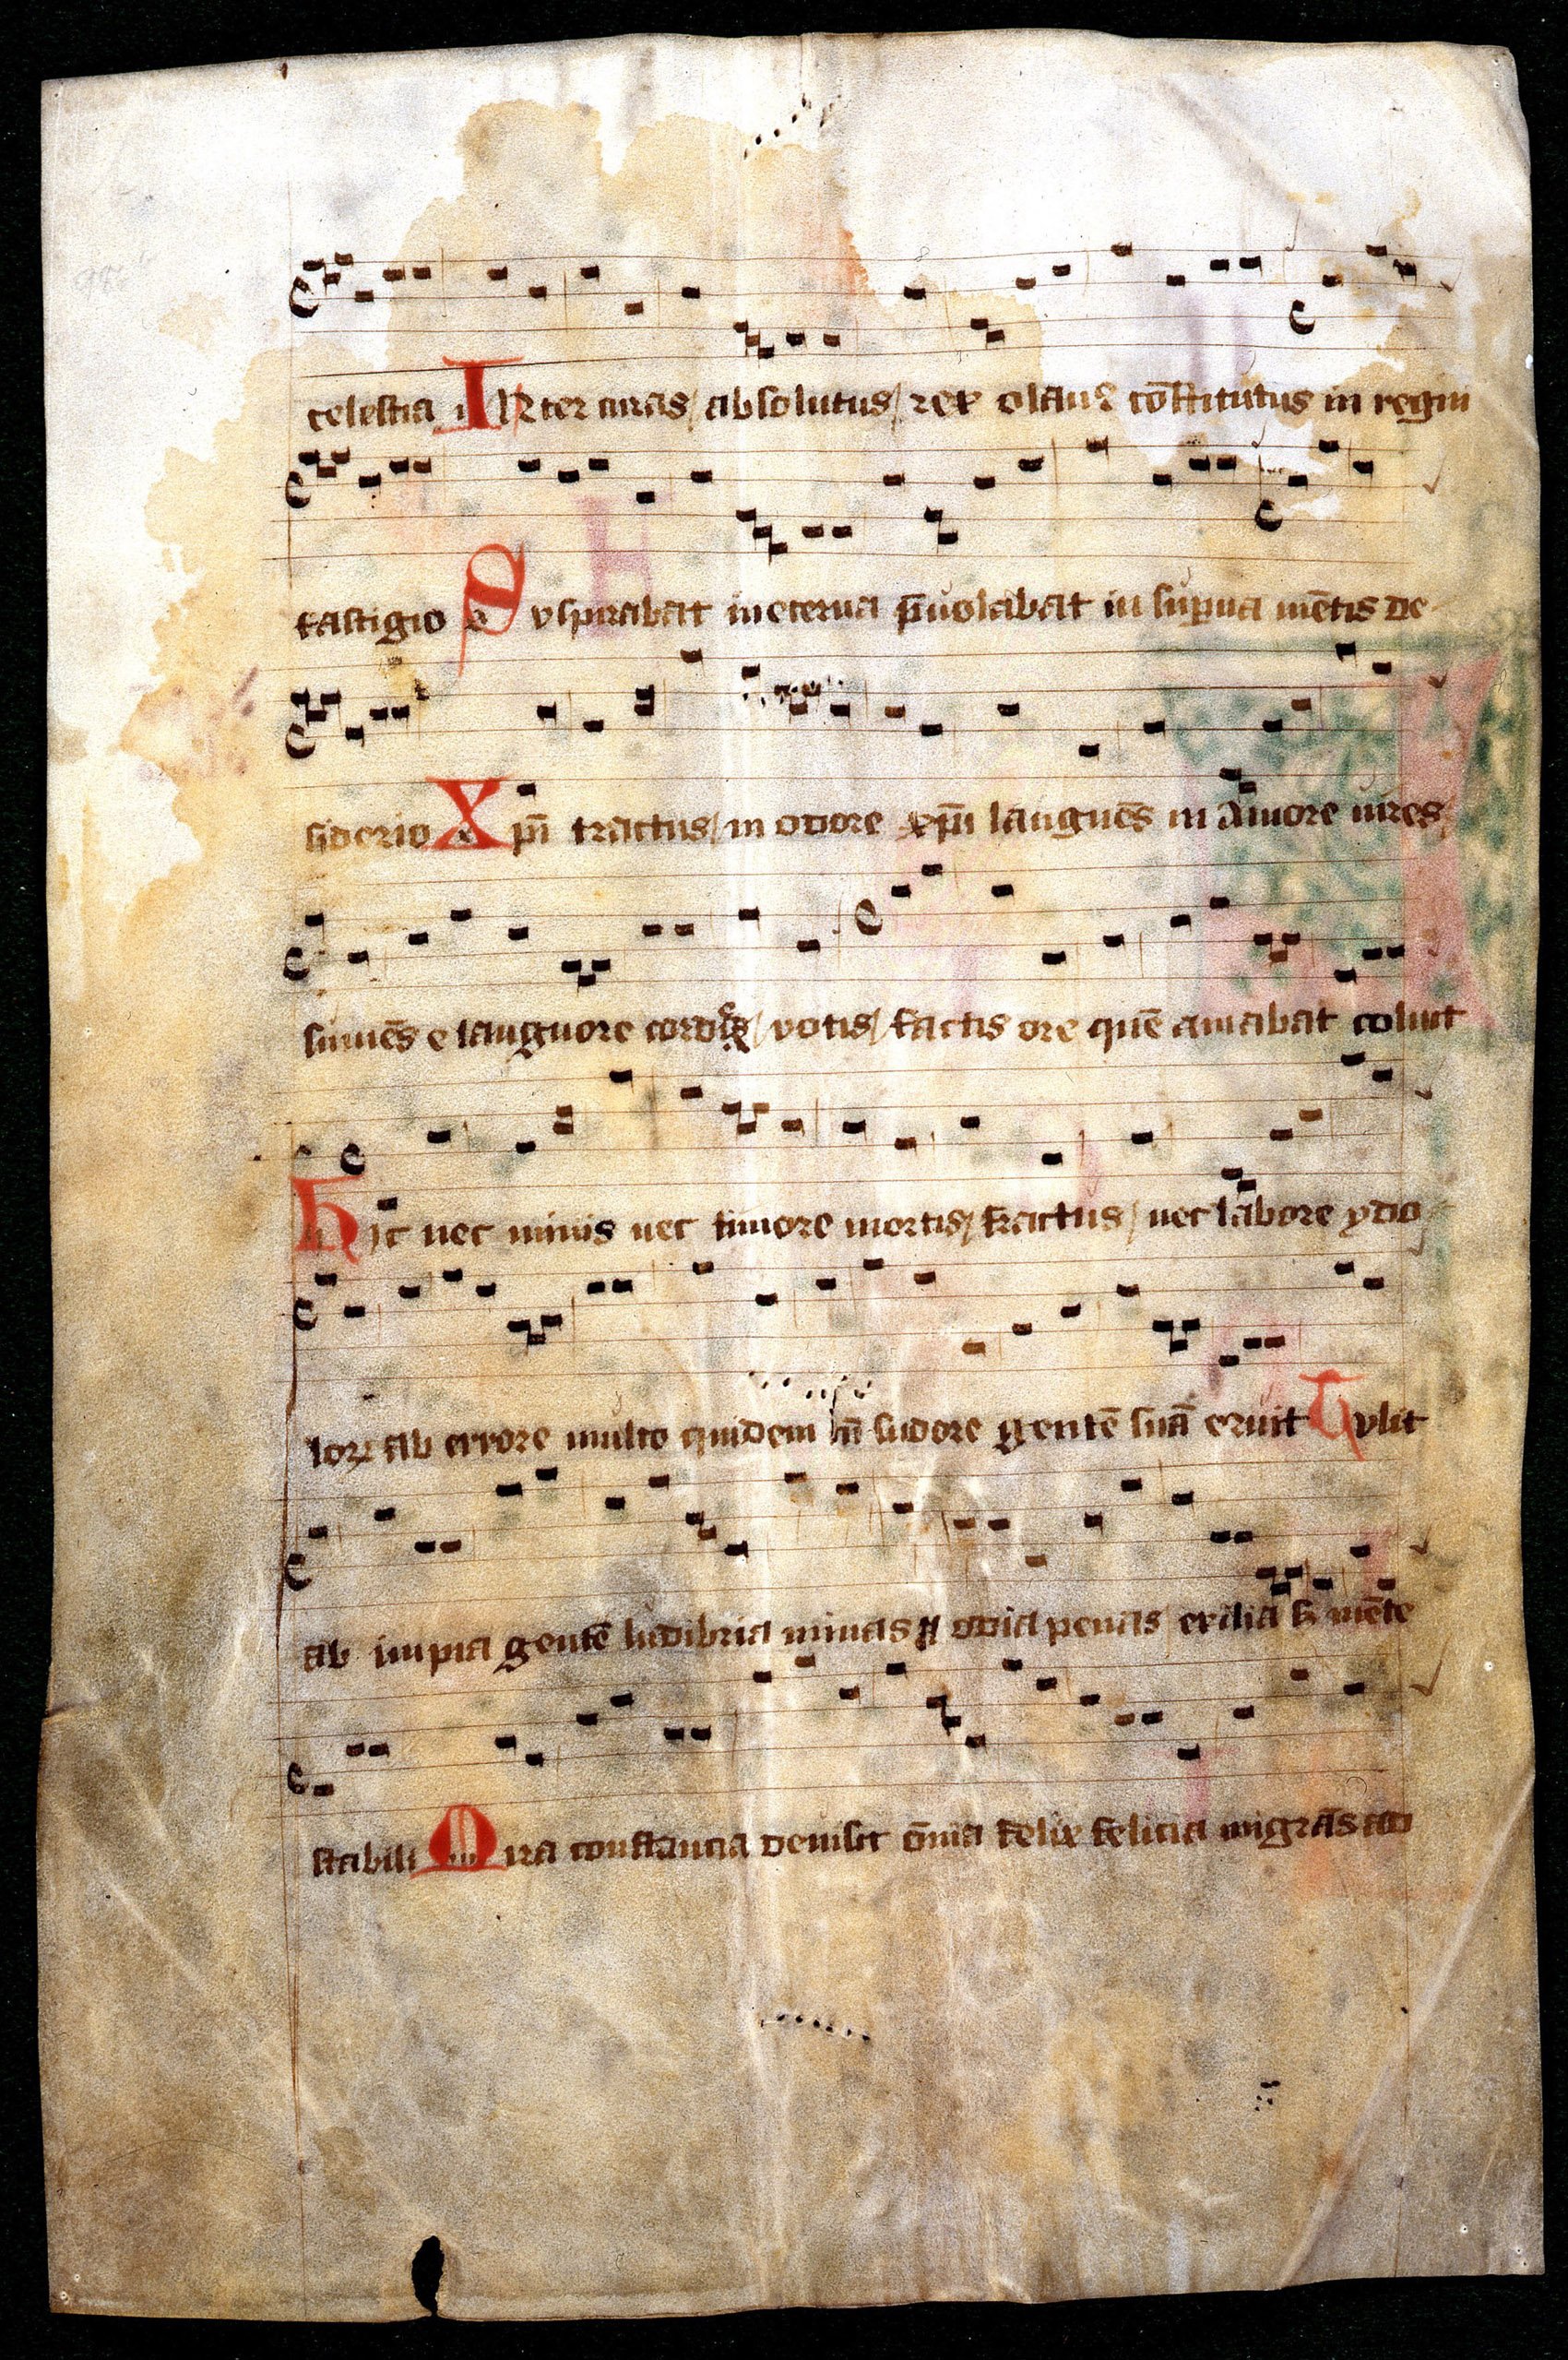 celestia INter curas/ absolutus/ rex olauꝰ cōstitutus in regni
fastigio Suspirabat in eterna p̄uolabat in sup̱na mētis de-
siderio Xpī tractus/ in odore xp̄i languēs in amore uires
sumēs e languore cordis/ votis/ factis ore quē amabat coluit
Hic nec minis nec timore mortis/ fractus/ nec labore ydo
loꝝ ab errore multo quidem cū sudore gentē suā eruit Tvlit
ab impia gente ludibria minas ⁊ odia penas exilia s; mēte
stabili Mira constancia deuisit ōmia felix felicia migrās ad